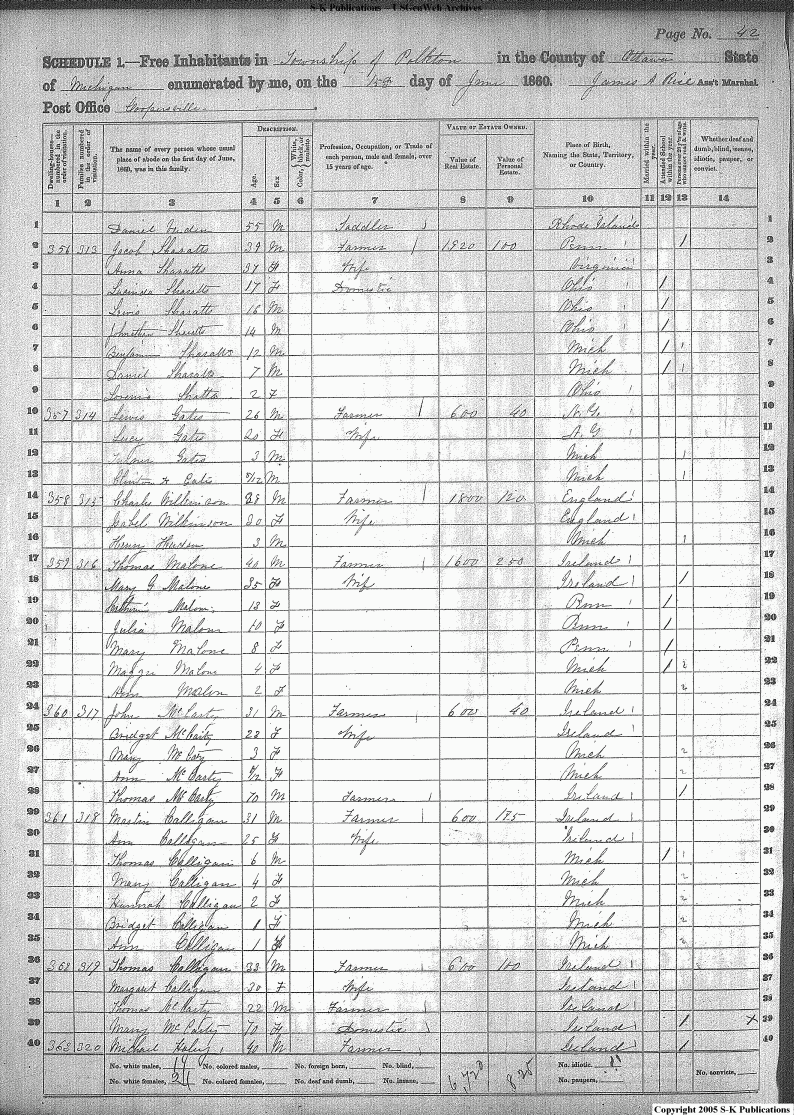 S-K Publications – USGenWeb Archives
Page No. 42
SCHEDULE 1.—Free Inhabitants in Township of Polkton in the County of Ottawa State
of Michigan enumerated by me, on the 15th day of June 1860. James A Rice Ass't Marshal.
Post Office Coopersville
Dwelling-houses—numbered in the order of visitation.
Families numbered in the order of visitation.
The name of every person whose usual place of abode on the first day of June, 1860, was in this family.
DESCRIPTION.
Age.
Sex.
Color, {White, black, or mulatto.
Profession, Occupation, or Trade of each person, male and female, over 15 years of age.
VALUE OF ESTATE OWNED.
Value of Real Estate.
Value of Personal Estate.
Place of Birth, Naming the State, Territory, or Country.
Married within the year.
Attended School within the year.
Persons over 20 y'rs of age who cannot read & write.
Whether deaf and dumb, blind, insane, idiotic, pauper, or convict.
1 2 3 4 5 6 7 8 9 10 11 12 13 14
1 Daniel 55 M Saddler Rhode Island 1
2 356 313 Jacob Sharatts 39 M Farmer 1920 100 Penn 1 2
3 Anna Sharatts 37 F Wife Virginia 3
4 Lucinda Sharatts 17 F Domestic Ohio 1 4
5 Lewis Sharatts 16 M Ohio 1 5
6 Johnathan Sharatts 14 M Ohio 1 6
7 Benjamin Sharatts 12 M Mich 1 1 7
8 Daniel Sharatts 7 M Mich 1 1 8
9 2 F Ohio 9
10 357 314 Lewis Gates 26 M Farmer 600 40 N.Y. 10
11 Lucy Gates 20 F Wife N.Y 11
12 Gates 3 M Mich 1 12
13 Clinton Gates /12 M Mich 1 13
14 358 315 Charles Wilkinson 38 M Farmer 1800 120 England 14
15 Isabel Wilkinson 30 F Wife England 15
16 Henry 3 M Mich 1 16
17 359 316 Thomas Malone 40 M Farmer 1600 250 Ireland 17
18 Mary G Malone 35 F Wife Ireland 1 18
19 Malone 13 F Penn 1 19
20 Julia Malone 10 F Penn 1 20
21 Mary Malone 8 F Penn 1 21
22 Maggie Malone 4 F Mich 1 2 22
23 Ann Malon 2 F Mich 2 23
24 360 317 John McCarty 31 M Farmer 600 40 Ireland 24
25 Bridget McCarty 28 F Wife Ireland 25
26 Mary McCarty 3 F Mich 2 26
27 Ann McCarty /12 F Mich 2 27
28 Thomas McCarty 70 M Farmer Ireland 1 28
29 361 318 Martin Calligan 31 M Farmer 600 175 Ireland 29
30 Ann Calligan 25 F Wife Ireland 30
31 Thomas Calligan 6 M Mich 1 1 31
32 Mary Calligan 4 F Mich 2 32
33 Hannah Calligan 2 F Mich 2 33
34 Bridget Calligan 1 F Mich 2 34
35 Ann Calligan 1 F Mich 2 35
36 362 319 Thomas Calligan 33 M Farmer 600 100 Ireland 36
37 Margaret Calligan 30 F Wife Ireland 37
38 Thomas McCarty 22 M Farmer Ireland 38
39 Mary McCarty 70 F Domestic Ireland 1 X 39
40 363 320 Michael 40 M Farmer Ireland 1 40
No. white males, 19 No. colored males, No. foreign born, No. blind, No. idiotic,
No. white females, 21 No. colored females, No. deaf and dumb, No. insane, 6,720 825 No. paupers, No. convicts,
Copyright 2005 S-K Publications